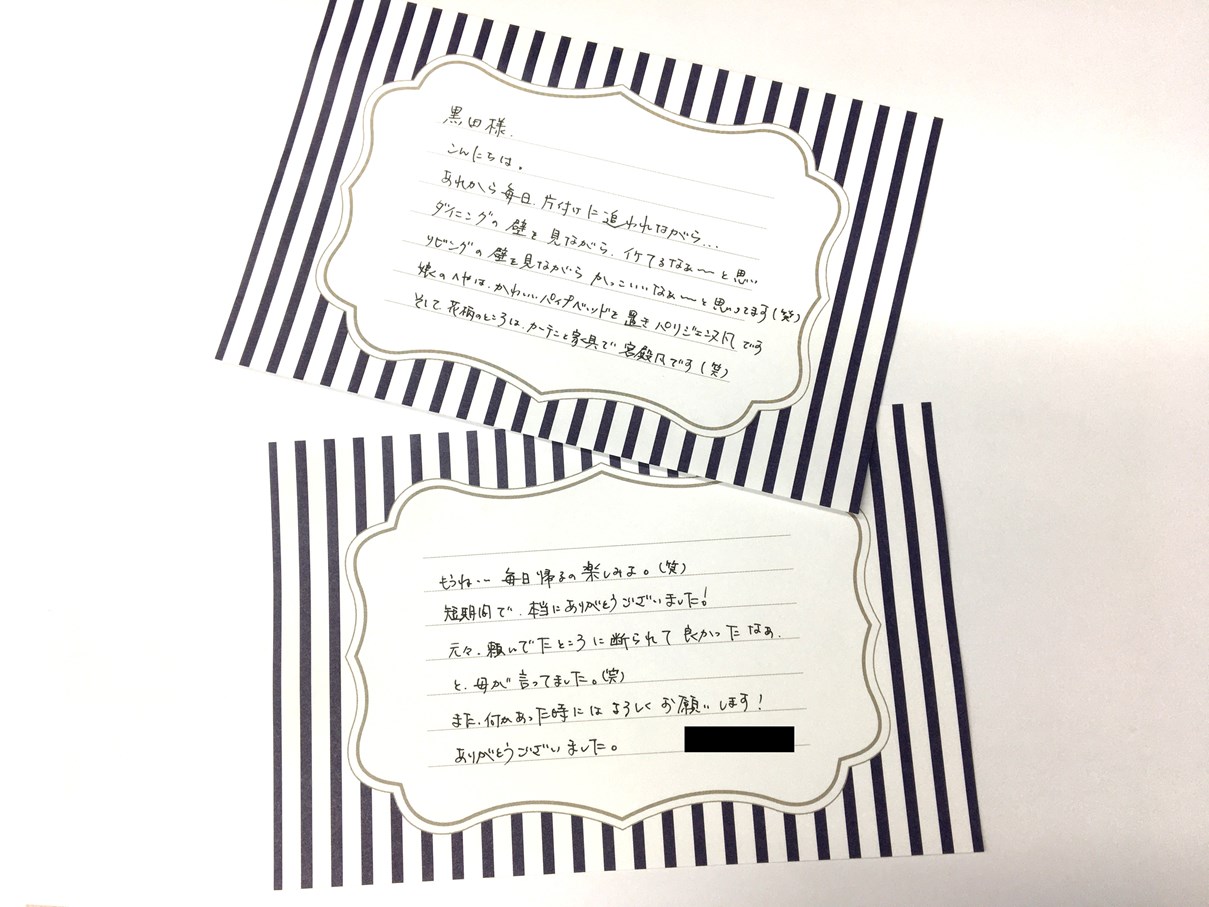 黒田様.
こんにちは。
あれから毎日、片付けに追われながら...
ダイニングの壁を見ながら、イケてるなぁ〜と思い
リビングの壁を見ながらかっこいいなぁ〜と思ってます(笑)
娘のへやは、かわいいパイプベッドを置きパリジェンヌ風です
そして、花柄のところは、カーテンと家具で宮殿風です(笑)
もうね〜毎日帰るの楽しみよ。(笑)
短期間で、本当にありがとうございました!
元々、頼んでたところに断られて良かったなぁ、
と、母が言ってました。(笑)
また、何かあった時にはよろしくお願いします!
ありがとうございました。